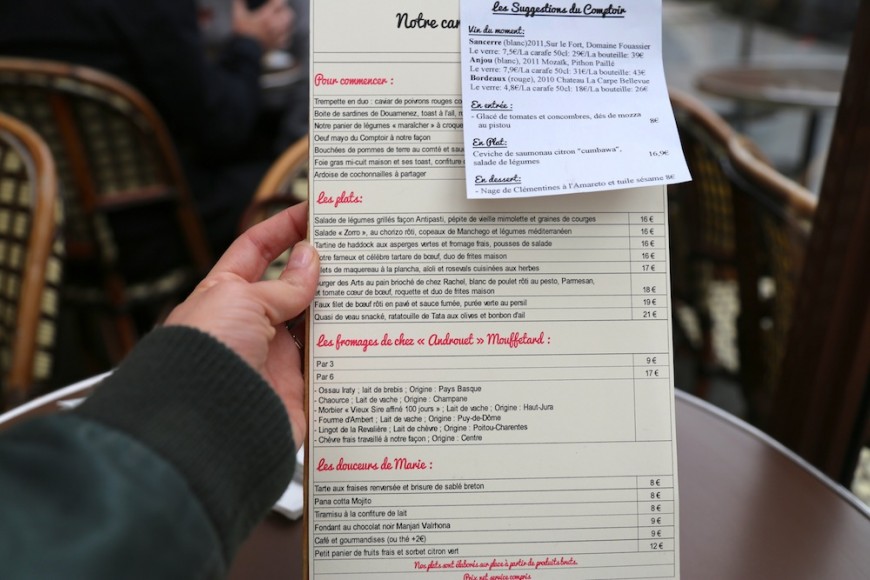 Notre car
Les Suggestions du Comptoir
Vin du moment:
Sancerre (blanc)2011,Sur le Fort, Domaine Fouassier
Le verre: 7,5€/La carafe 50cl: 29€/La bouteille: 39€
Anjou (blanc), 2011 Mozaïk, Pithon Paillé
Le verre: 7,9€/La carafe 50cl: 31€/La bouteille: 43€
Bordeaux (rouge), 2010 Chateau La Carpe Bellevue
Le verre: 4,8€/La carafe 50cl: 18€/La bouteille: 26€
En entrée :
- Glacé de tomates et concombres, dés de mozza
au pistou 8€
En Plat:
Ceviche de saumonau citron "cumbawa",
salade de légumes 16,9€
En dessert:
- Nage de Clémentines à l'Amareto et tuile sésame 8€
Pour commencer :
Trempette en duo : caviar de poivrons rouges co
Boite de sardines de Douarnenez, toast à l'ail, m
Notre panier de légumes « maraîcher » à croque
Oeuf mayo du Comptoir à notre façon
Bouchées de pommes de terre au comté et sau
Foie gras mi-cuit maison et ses toast, confiture
Ardoise de cochonnailles à partager
Les plats:
Salade de légumes grillés façon Antipasti, pépite de vieille mimolette et graines de courges 16 €
Salade « Zorro », au chorizo rôti, copeaux de Manchego et légumes méditerranéen 16 €
Tartine de haddock aux asperges vertes et fromage frais, pousses de salade 16 €
otre fameux et célèbre tartare de bœuf, duo de frites maison 16 €
lets de maquereau à la plancha, aïoli et rosevals cuisinées aux herbes 17 €
urger des Arts au pain brioché de chez Rachel, blanc de poulet rôti au pesto, Parmesan,
t tomate cœur de bœuf, roquette et duo de frites maison 18 €
Faux filet de bœuf rôti en pavé et sauce fumée, purée verte au persil 19 €
Quasi de veau snacké, ratatouille de Tata aux olives et bonbon d'ail 21 €
Les fromages de chez « Androuet » Mouffetard :
Par 3 9 €
Par 6 17 €
- Ossau Iraty ; lait de brebis ; Origine : Pays Basque
- Chaource ; Lait de vache ; Origine : Champane
- Morbier « Vieux Sire affiné 100 jours » ; Lait de vache ; Origine : Haut-Jura
- Fourme d'Ambert ; Lait de vache ; Origine : Puy-de-Dôme
- Lingot de la Revalière ; Lait de chèvre ; Origine : Poitou-Charentes
- Chèvre frais travaillé à notre façon ; Origine : Centre
Les douceurs de Marie :
Tarte aux fraises renversée et brisure de sablé breton 8 €
Pana cotta Mojito 8 €
Tiramisu à la confiture de lait 8 €
Fondant au chocolat noir Manjari Valrhona 9 €
Café et gourmandises (ou thé +2€) 9 €
Petit panier de fruits frais et sorbet citron vert 12 €
Nos plats sont élaborés sur place à partir de produits bruts.
Prix net service compris